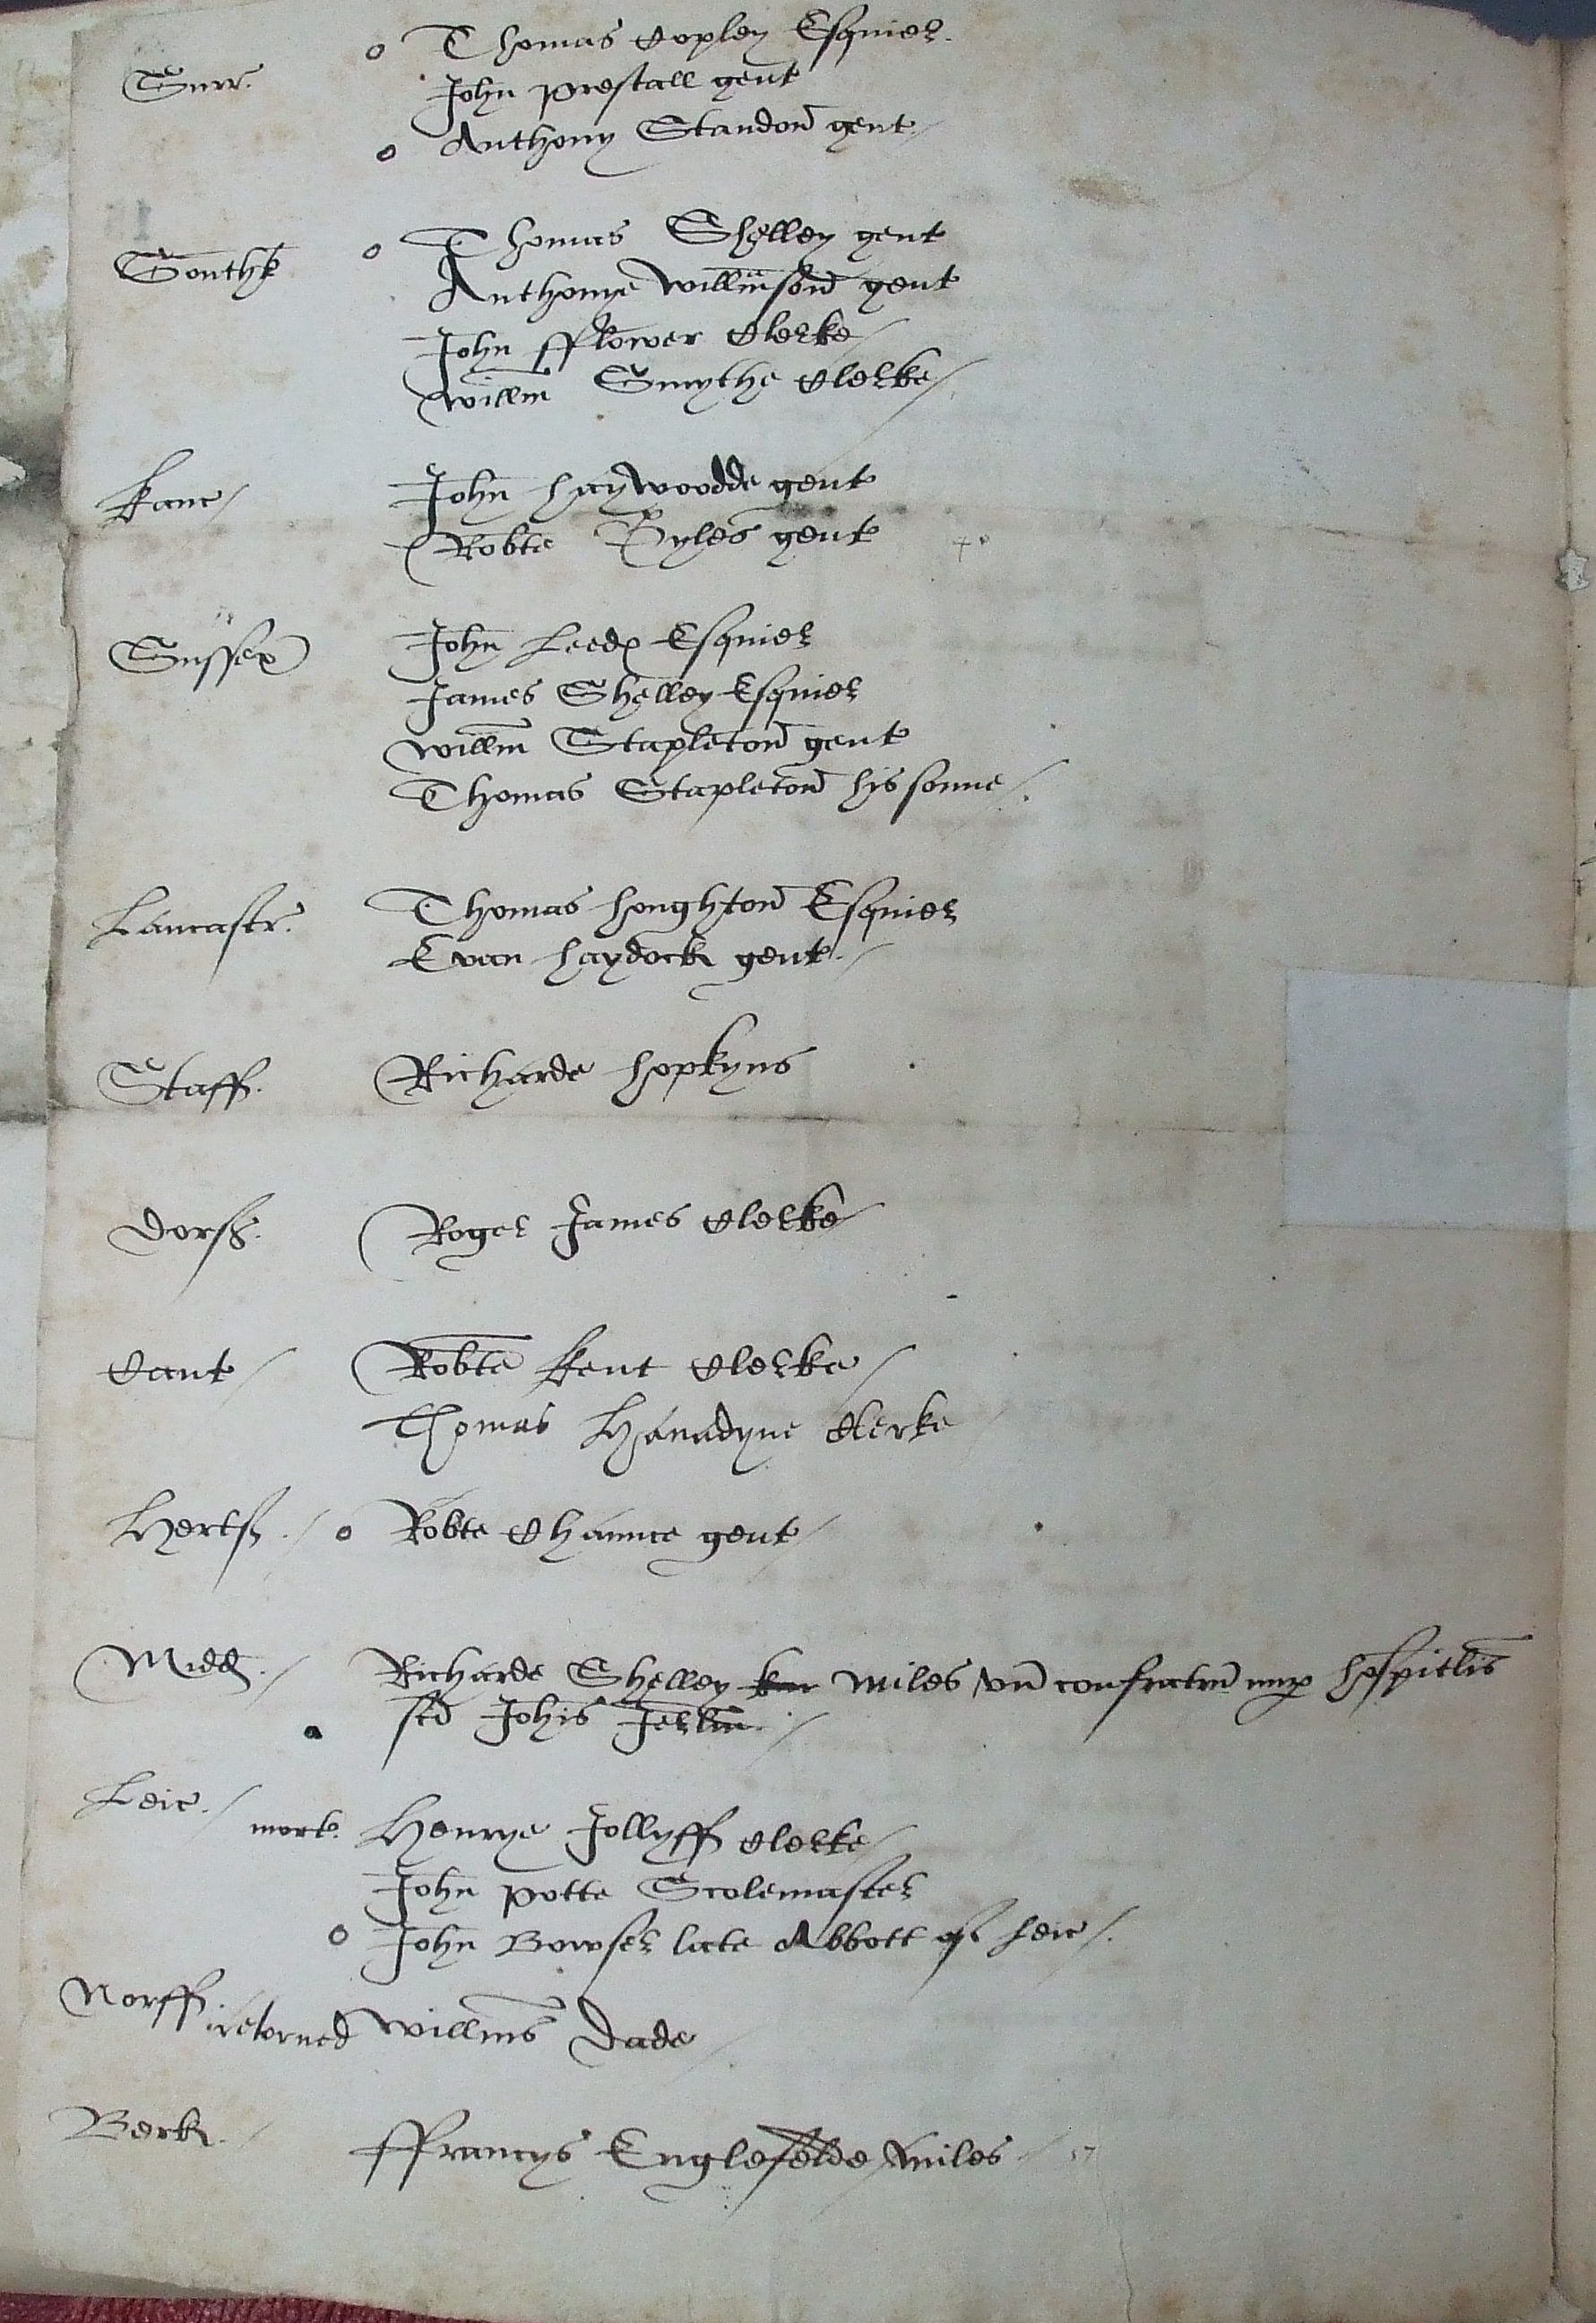 o Thomas Copley Esquier.
Surr. John prestall gent
o Anthony Standon gent
Southt o Thomas Shelley gent
Anthonye willmson gent
John fflower Clerke
willm Smythe Clerke
Kanc John haywoodde gent
Robte Gyles gent
Sussex John Leeds Esquier
James Shelley Esquier
willm Stapleton gent
Thomas Stapleton his sonne
Lancastr. Thomas houghton Esquier
Evan haydock gent.
Staff. Richarde hopkyns
Dors. Roger James Clerke
Cant Robte Kent Clerke
Thomas Clerke
Herts o Robte Chaunce gent
Midd. Richarde Shelley kn miles un confratru nup hospitlis
o sci Johis Jerlm.
Leic. mort. Henrye Jollyff Clerke
John potte Scolemaster
o John Bowser late Abbott of Leic.
Norff. retorned willms Dade
Berk. ffrancys Englefelde miles